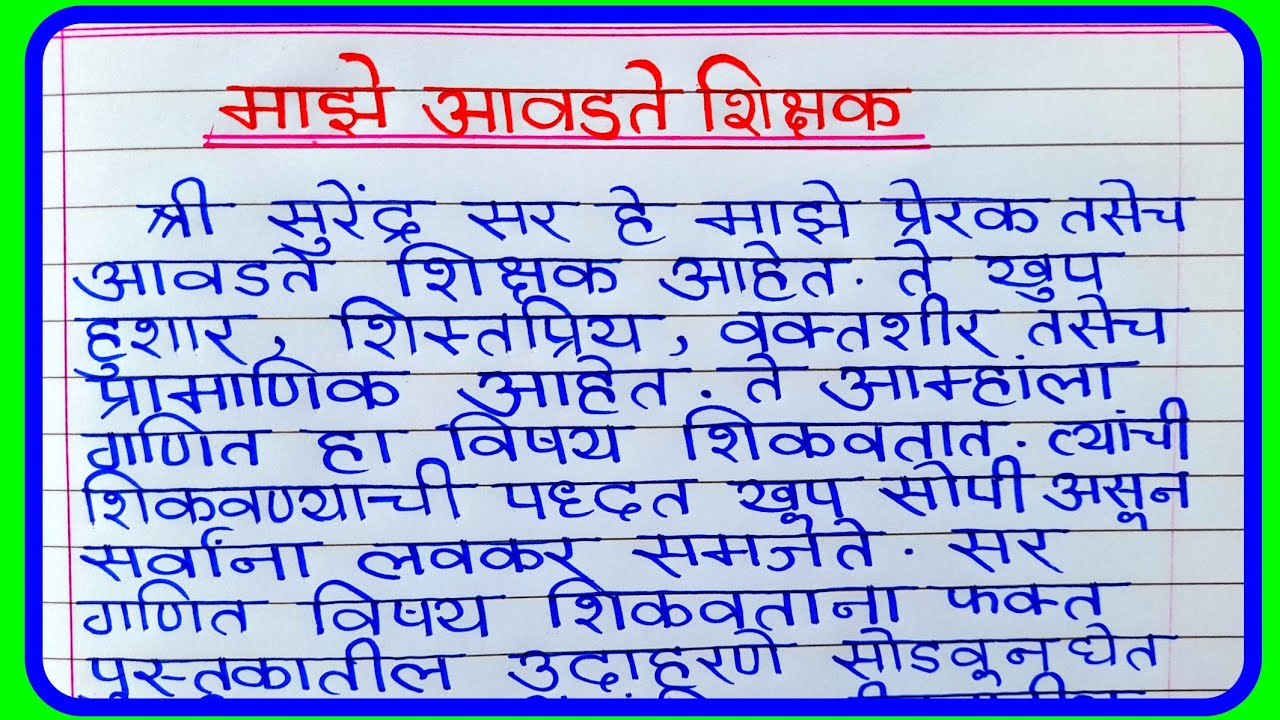 माझे आवडते शिक्षक
श्री सुरेंद्र सर हे माझे प्रेरक तसेच
आवडते शिक्षक आहेत. ते खुप
हुशार, शिस्तप्रिय, वक्तशीर तसेच
प्रामाणिक आहेत. ते आम्हांला
गणित हा विषय शिकवतात. त्यांची
शिकवण्याची पध्दत खूप सोपी असून
सर्वांना लवकर समजते. सर
गणित विषय शिकवताना फक्त
पुस्तकातील उदाहरणे सोडवून घेत